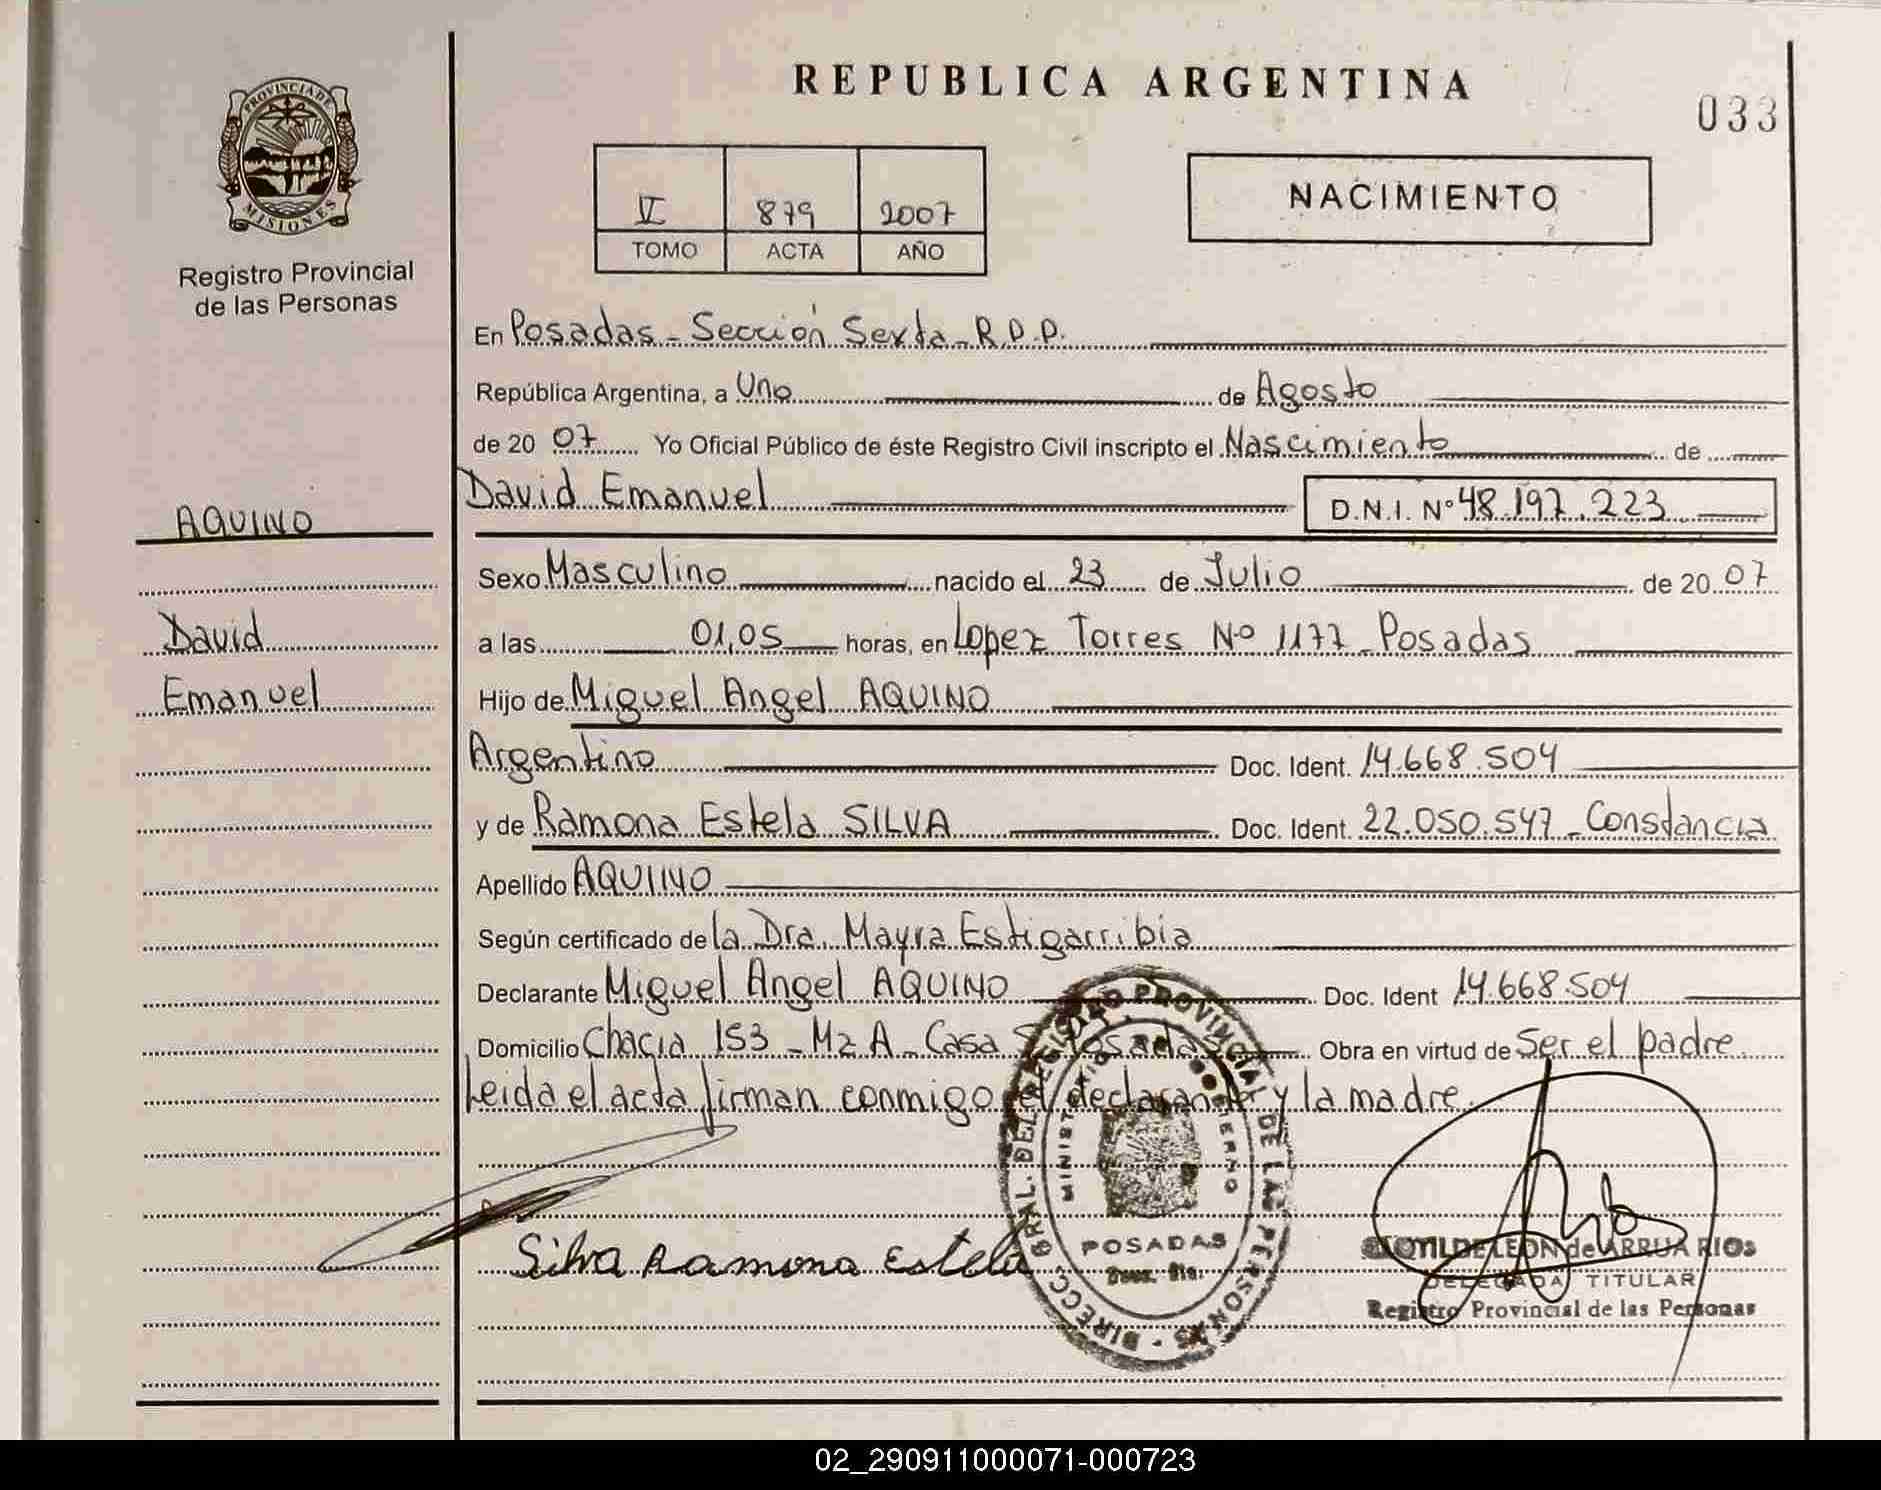 REPUBLICA ARGENTINA
033
PROVINCIA DE
MISIONES
Registro Provincial
de las Personas
VI 879 2007
TOMO ACTA AÑO
NACIMIENTO
En Posadas - Sección Sexta - R.P.P.
República Argentina, a Uno de Agosto
de 20 07 Yo Oficial Público de éste Registro Civil inscripto el Nascimiento de
David Emanuel D.N.I. Nº 48.197.223
AQUINO
David
Emanuel
Sexo Masculino nacido el 23 de Julio de 20 07
a las 01,05 horas, en Lopez Torres Nº 1177 - Posadas
Hijo de Miguel Angel AQUINO
Argentino Doc. Ident. 14.668.504
y de Ramona Estela SILVA Doc. Ident. 22.050.547 - Constancia
Apellido AQUINO
Según certificado de la Dra. Mayra Estigarribia
Declarante Miguel Angel AQUINO Doc. Ident 14.668.504
Domicilio Chacra 153 - Mz A - Casa Posadas Obra en virtud de Ser el padre
Leida el acta firman conmigo el declarante y la madre.
Silva Ramona Estela
DIRECC. GRAL. DEL REGISTRO PROVINCIAL DE LAS PERSONAS
MINISTERIO DE GOBIERNO
POSADAS
CLOTILDE LEON de ARRUA RIOS
DELEGADA TITULAR
Registro Provincial de las Personas
02_290911000071-000723